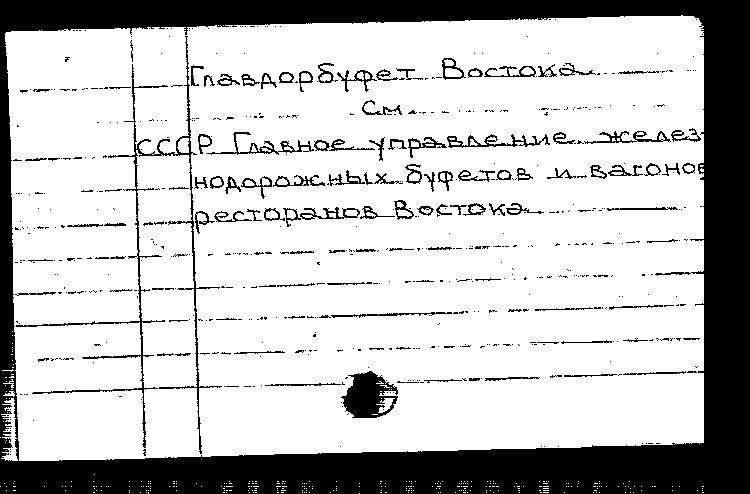 Главдорбуфет Востока
См.
СССР Главное управление желез-
нодорожных буфетов и вагонов
ресторанов Востока